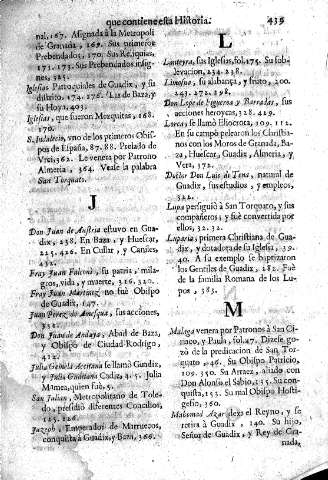 que contiene esta Historia. 439
nal, 167. Asignada à la Metropoli
de Granada, 169. Sus primeros
Prebendados, 170. Sus Reliquias,
171. 173. Sus Prebendados insig-
nes, 325.
Iglesias Parroquiales de Guadix, y su
distrito, 174. 176. De Baza, y
su Hoya, 403.
Iglesias, que fueron Mezquitas, 168.
170.
S. Indalecio, vno de los primeros Obis-
pos de España, 87. 88. Prelado de
Vrci, 362. Le venera por Patrono
Almeria, 364. Vease la palabra
San Torquato.
J
Don Juan de Austria estuvo en Gua-
dix, 238. En Baza, y Huescar,
225. 426. En Cullar, y Caniles,
432.
Fray Juan Falconi, su patria, mila-
gros, vida, y muerte, 316. 320.
Fray Juan Martinez, no fuè Obispo
de Guadix, 147.
Juan Perez de Amesqua, sus acciones,
312.
Don Juan de Andaya, Abad de Baza,
y Obispo de Ciudad-Rodrigo,
412.
Julia Gemela Accitana se llamò Guadix,
y Julia Guaditana Cadiz, 4. 5. Julia
Mamea, quien fuè, 5.
San Julian, Metropolitano de Tole-
do, presidiò diferentes Concilios,
125. 126.
Juzeph, Emperador de Marruecos,
conquista à Guadix, y Baza, 366.
L
Lanteyra, sus Iglesias, fol. 175. Su sub-
levacion, 234. 238.
Limosna, su alabança, y fruto, 200.
243. 272. 298.
Don Lope de Figueroa y Barradas, sus
acciones heroycas, 328. 429.
Lorca, se llamò Eliocrota, 109. 112.
En su campo pelearon los Christia-
nos con los Moros de Granada, Ba-
za, Huescar, Guadix, Almeria, y
Vera, 372.
Doctor Don Luis de Tena, natural de
Guadix, sus estudios, y empleos,
322.
Lupa persiguiò à San Torquato, y sus
compañeros; y fuè convertida por
ellos, 32. 32.
Luparia, primera Christiana de Gua-
dix, y dotadora de su Iglesia, 39.
40. A su exemplo se baptizaron
los Gentiles de Guadix, 282. Fuè
de la familia Romana de los Lu-
pos, 383.
M
Malaga venera por Patronos à San Ci-
riaco, y Paula, fol. 47. Dizese, go-
zò de la predicacion de San Tor-
quato, 46. Su Obispo Patricio,
109. 350. Su Arraez, aliado con
Don Alonso el Sabio, 155. Su con-
quista, 155. Su mal Obispo Hosti-
gesio, 360.
Mahomad Azar dexa el Reyno, y se
retira à Guadix, 140. Su hijo,
Señor de Guadix, y Rey de Gra-
nada,